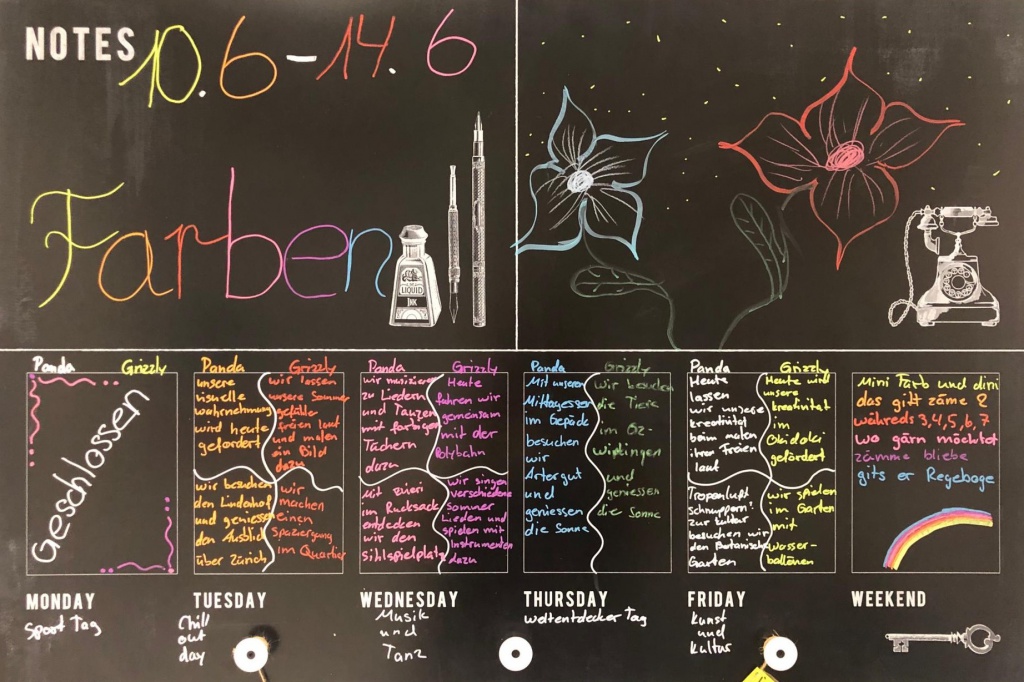 NOTES 10.6-14.6
Farben
LIQUID
INK
Panda Grizzly
Geschlossen
MONDAY
Sport Tag
Panda
unsere
visuelle
wahrnehmung
wird heute
gefördert
wir besuchen
den Lindenhof
und geniessen
den Ausblick
über Zürich
Grizzly
wir lassen
unsere Sommer
gefühle
freien lauf
und malen
ein Bild
dazu
wir
machen
einen
Spaziergang
im Quartier
TUESDAY
Chill
out
day
Panda
wir musizieren
zu Liedern
und Tanzen
mit farbigen
Tüchern
dazu
Mit Znüni
im Rucksack
entdecken
wir den
sihlspielplatz
Grizzly
Heute
fahren wir
gemeinsam
mit der
Polybahn
wir singen
verschiedene
Sommer
Lieder und
spielen mit
Instrumenten
dazu
WEDNESDAY
Musik
und
Tanz
Panda
Mit unseren
Mittagessen
im Gepäck
besuchen
wir
Artergut
und
geniessen
die Sonne
Grizzly
wir besuchen
die Tiere
im GZ-
Wipkingen
und
geniessen
die Sonne
THURSDAY
weltentdecker Tag
Panda
Heute
lassen
wir unsere
kreativität
beim malen
ihren Freien
lauf
Tropenluft
Schnuppern!
zur kultur
besuchen wir
den Botanischen
Garten
Grizzly
Heute wird
unsere
kreativität
im
Okidoki
gefördert
wir spielen
im Garten
mit
wasser-
ballonen
FRIDAY
Kunst
und
kultur
Mini Farb und dini
das gitt zäme 2
währeds 3,4,5,6,7
wo gärn möchtet
zämme bliebe
gits er Regeboge
WEEKEND